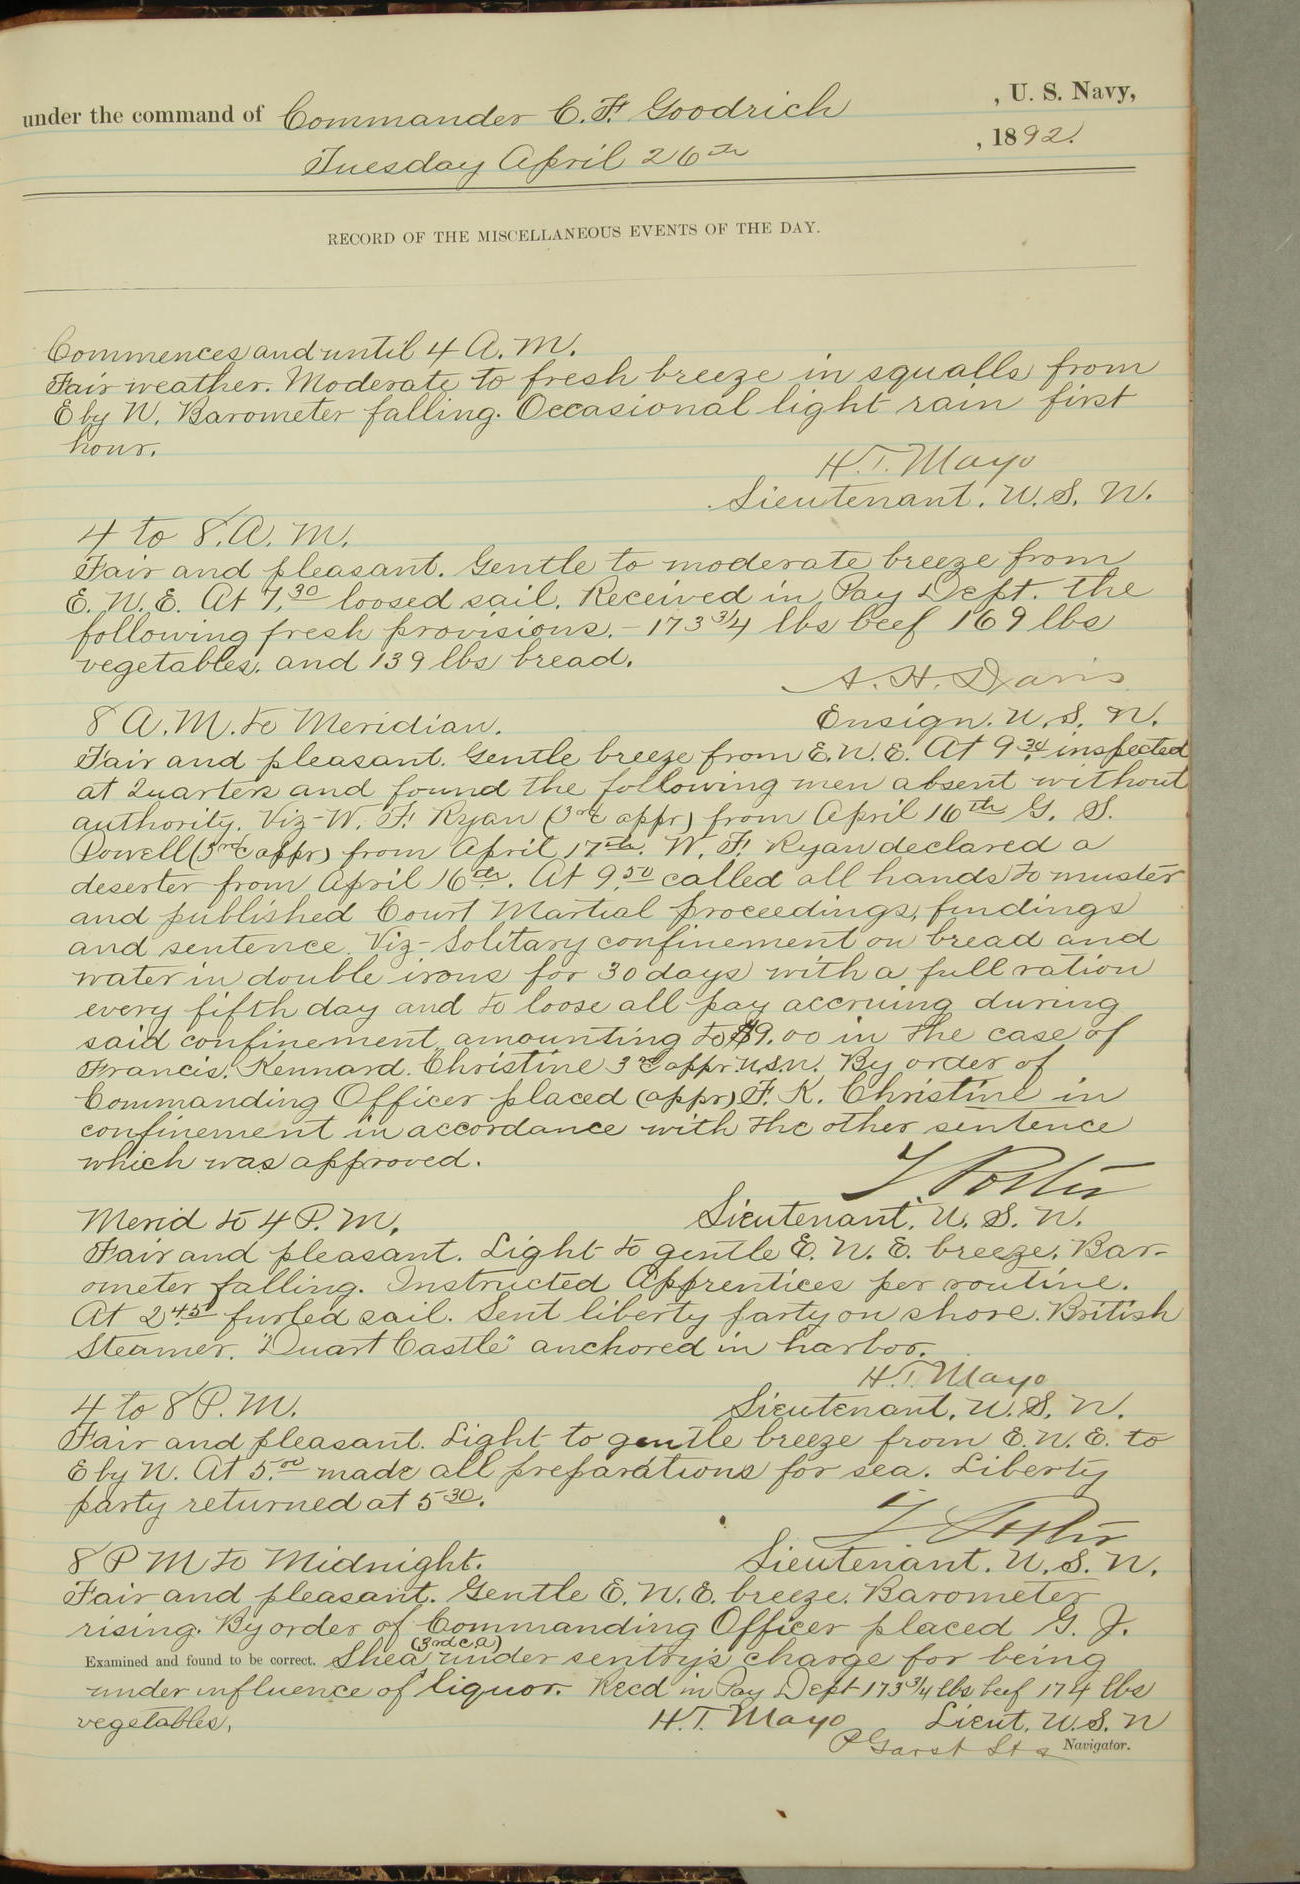 under the command of Commander C. F. Goodrich , U. S. Navy,
Tuesday April 26th , 1892.
RECORD OF THE MISCELLANEOUS EVENTS OF THE DAY.
Commences and until 4 A. M.
Fair weather. Moderate to fresh breeze in squalls from
E by N. Barometer falling. Occasional light rain first
hour.
H. T. Mayo
Lieutenant. U. S. N.
4 to 8. A. M.
Fair and pleasant. Gentle to moderate breeze from
E. N. E. At 7.30 loosed sail. Received in Pay Dept. the
following fresh provisions. - 173 3/4 lbs beef 169 lbs
vegetables. and 139 lbs bread.
A. H. Davis
8 A. M. to Meridian. Ensign. U. S. N.
Fair and pleasant. Gentle breeze from E. N. E. At 9.30 inspected
at Quarters and found the following men absent without
authority. Viz- W. F. Ryan (3rd appr) from April 16th G. S.
Powell (3rd appr) from April 17th. W. F. Ryan declared a
deserter from April 16th. At 9.50 called all hands to muster
and published Court Martial proceedings, findings
and sentence. Viz- Solitary confinement on bread and
water in double irons for 30 days with a full ration
every fifth day and to loose all pay accruing during
said confinement amounting to $9.00 in the case of
Francis. Kennard. Christine 3rd appr. U.S.N. By order of
Commanding Officer placed (appr) F. K. Christine in
confinement in accordance with the other sentence
which was approved.
T. Porter
Merid to 4 P. M. Lieutenant. U. S. N.
Fair and pleasant. Light to gentle E. N. E. breeze. Bar-
ometer falling. Instructed Apprentices per routine.
At 2.45 furled sail. Sent liberty party on shore. British
Steamer. "Duart Castle" anchored in harbor.
H. T. Mayo
4 to 8 P. M. Lieutenant. U. S. N.
Fair and pleasant. Light to gentle breeze from E. N. E. to
E by N. At 5.00 made all preparations for sea. Liberty
party returned at 5 30.
T Porter
8 P M to Midnight. Lieutenant. U. S. N.
Fair and pleasant. Gentle E. N. E. breeze. Barometer
rising. By order of Commanding Officer placed G. J.
Examined and found to be correct. Shea (3rd c. a) under sentry's charge for being
under influence of liquor. Recd in Pay Dept 173 3/4 lbs beef 174 lbs
vegetables. H. T. Mayo Lieut. U. S. N
P Garst Navigator.